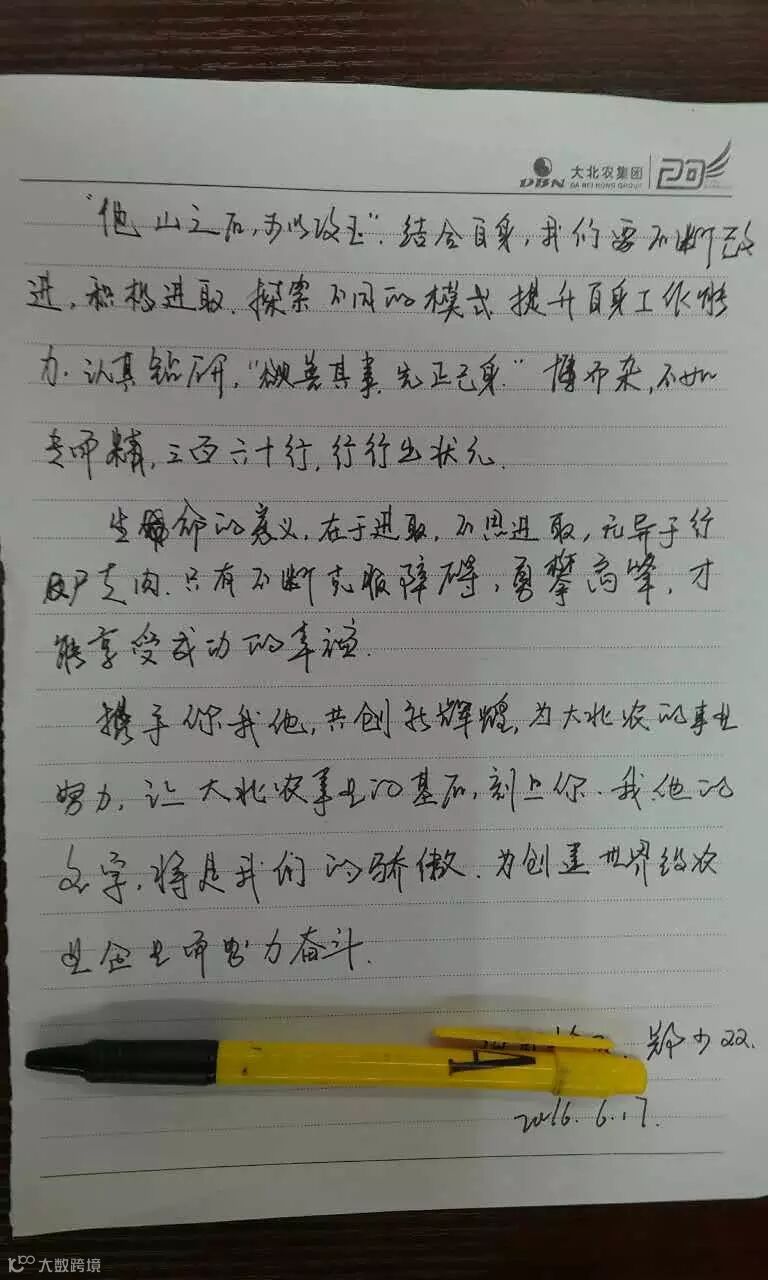 DBN 大北农集团 20
DA BEI NONG GROUP
"他山之石,可以攻玉".结合自身,我们要不断改
进,积极进取.探索不同的模式提升自身工作能
力.认真钻研,"欲善其事,先正己身."博而杂,不如
专而精,三百六十行,行行出状元.
生命的意义,在于进取,不思进取,无异于行
尸走肉.只有不断克服障碍,勇攀高峰,才
能享受成功的幸福.
携手你我他,共创新辉煌,为大北农的事业
努力,让大北农事业的基石,刻上你、我、他的
名字,将是我们的骄傲.为创造世界级农
业企业而努力奋斗.
郑少双.
2016.6.17.
A
大数跨境